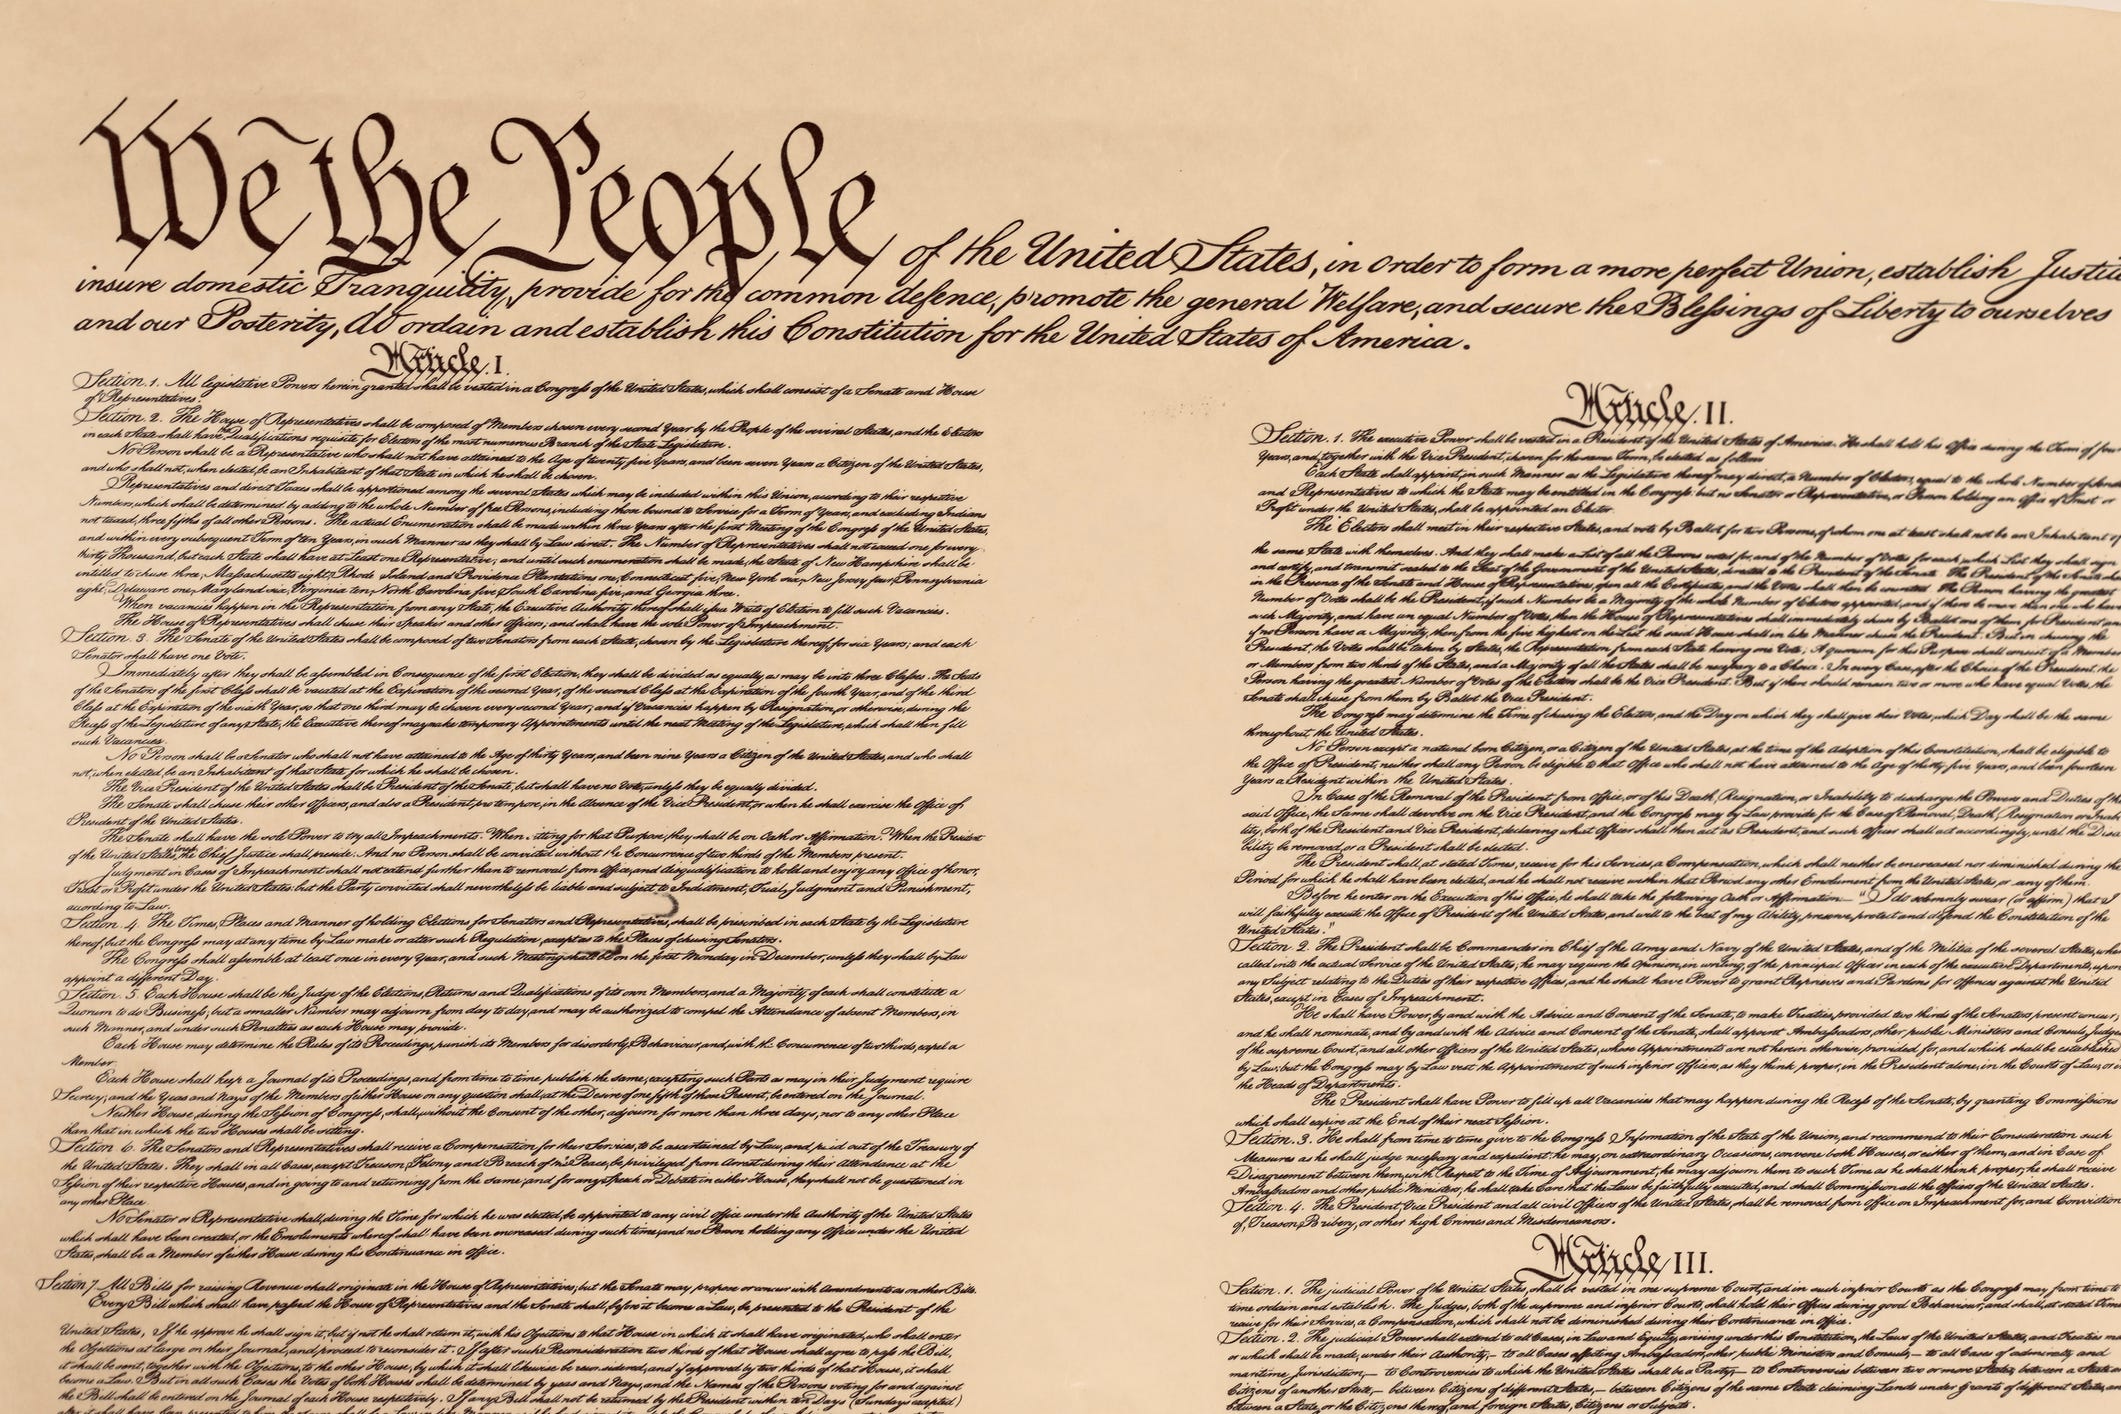 We the People of the United States, in order to form a more perfect Union, establish Justic
insure domestic Tranquility, provide for the common defence, promote the general Welfare, and secure the Blessings of Liberty to ourselves
and our Posterity, do ordain and establish this Constitution for the United States of America.
Article. I.
Section. 1. All legislative Powers herein granted shall be vested in a Congress of the United States, which shall consist of a Senate and House
of Representatives.
Section. 2. The House of Representatives shall be composed of Members chosen every second Year by the People of the several States, and the Electors
in each State shall have the Qualifications requisite for Electors of the most numerous Branch of the State Legislature.
No Person shall be a Representative who shall not have attained to the Age of twenty five Years, and been seven Years a Citizen of the United States,
and who shall not, when elected, be an Inhabitant of that State in which he shall be chosen.
Representatives and direct Taxes shall be apportioned among the several States which may be included within this Union, according to their respective
Numbers, which shall be determined by adding to the whole Number of free Persons, including those bound to Service for a Term of Years, and excluding Indians
not taxed, three fifths of all other Persons. The actual Enumeration shall be made within three Years after the first Meeting of the Congress of the United States,
and within every subsequent Term of ten Years, in such Manner as they shall by Law direct. The Number of Representatives shall not exceed one for every
thirty Thousand, but each State shall have at Least one Representative; and until such enumeration shall be made, the State of New Hampshire shall be
entitled to chuse three, Massachusetts eight, Rhode Island and Providence Plantations one, Connecticut five, New York six, New Jersey four, Pennsylvania
eight, Delaware one, Maryland six, Virginia ten, North Carolina five, South Carolina five, and Georgia three.
When vacancies happen in the Representation from any State, the Executive Authority thereof shall issue Writs of Election to fill such Vacancies.
The House of Representatives shall chuse their Speaker and other Officers; and shall have the sole Power of Impeachment.
Section. 3. The Senate of the United States shall be composed of two Senators from each State, chosen by the Legislature thereof, for six Years; and each
Senator shall have one Vote.
Immediately after they shall be assembled in Consequence of the first Election, they shall be divided as equally as may be into three Classes. The Seats
of the Senators of the first Class shall be vacated at the Expiration of the second Year, of the second Class at the Expiration of the fourth Year, and of the third
Class at the Expiration of the sixth Year, so that one third may be chosen every second Year; and if Vacancies happen by Resignation, or otherwise, during the
Recess of the Legislature of any State, the Executive thereof may make temporary Appointments until the next Meeting of the Legislature, which shall then fill
such Vacancies.
No Person shall be a Senator who shall not have attained to the Age of thirty Years, and been nine Years a Citizen of the United States, and who shall
not, when elected, be an Inhabitant of that State for which he shall be chosen.
The Vice President of the United States shall be President of the Senate, but shall have no Vote, unless they be equally divided.
The Senate shall chuse their other Officers, and also a President pro tempore, in the Absence of the Vice President, or when he shall exercise the Office of
President of the United States.
The Senate shall have the sole Power to try all Impeachments. When sitting for that Purpose, they shall be on Oath or Affirmation. When the President
of the United States is tried, the Chief Justice shall preside: And no Person shall be convicted without the Concurrence of two thirds of the Members present.
Judgment in Cases of Impeachment shall not extend further than to removal from Office, and disqualification to hold and enjoy any Office of honor,
Trust or Profit under the United States: but the Party convicted shall nevertheless be liable and subject to Indictment, Trial, Judgment and Punishment,
according to Law.
Section. 4. The Times, Places and Manner of holding Elections for Senators and Representatives, shall be prescribed in each State by the Legislature
thereof; but the Congress may at any time by Law make or alter such Regulation, except as to the Places of chusing Senators.
The Congress shall assemble at least once in every Year, and such Meeting shall be on the first Monday in December, unless they shall by Law
appoint a different Day.
Section. 5. Each House shall be the Judge of the Elections, Returns and Qualifications of its own Members, and a Majority of each shall constitute a
Quorum to do Business; but a smaller Number may adjourn from day to day, and may be authorized to compel the Attendance of absent Members, in
such Manner, and under such Penalties as each House may provide.
Each House may determine the Rules of its Proceedings, punish its Members for disorderly Behaviour, and, with the Concurrence of two thirds, expel a
Member.
Each House shall keep a Journal of its Proceedings, and from time to time publish the same, excepting such Parts as may in their Judgment require
Secrecy; and the Yeas and Nays of the Members of either House on any question shall, at the Desire of one fifth of those Present, be entered on the Journal.
Neither House, during the Session of Congress, shall, without the Consent of the other, adjourn for more than three days, nor to any other Place
than that in which the two Houses shall be sitting.
Section 6. The Senators and Representatives shall receive a Compensation for their Services, to be ascertained by Law, and paid out of the Treasury of
the United States. They shall in all Cases, except Treason, Felony and Breach of the Peace, be privileged from Arrest during their Attendance at the
Session of their respective Houses, and in going to and returning from the same; and for any Speech or Debate in either House, they shall not be questioned in
any other Place.
No Senator or Representative shall, during the Time for which he was elected, be appointed to any civil Office under the Authority of the United States
which shall have been created, or the Emoluments whereof shall have been encreased during such time; and no Person holding any Office under the United
States, shall be a Member of either House during his Continuance in Office.
Section 7. All Bills for raising Revenue shall originate in the House of Representatives; but the Senate may propose or concur with Amendments as on other Bills.
Every Bill which shall have passed the House of Representatives and the Senate shall, before it become a Law, be presented to the President of the
United States; If he approve he shall sign it, but if not he shall return it, with his Objections to that House in which it shall have originated, who shall enter
the Objections at large on their Journal, and proceed to reconsider it. If after such Reconsideration two thirds of that House shall agree to pass the Bill,
it shall be sent, together with the Objections, to the other House, by which it shall likewise be reconsidered, and if approved by two thirds of that House, it shall
become a Law. But in all such Cases the Votes of both Houses shall be determined by yeas and Nays, and the Names of the Persons voting for and against
the Bill shall be entered on the Journal of each House respectively. If any Bill shall not be returned by the President within ten Days (Sundays excepted)
Article. II.
Section. 1. The executive Power shall be vested in a President of the United States of America. He shall hold his Office during the Term of four
Years, and, together with the Vice President, chosen for the same Term, be elected as follows
Each State shall appoint, in such Manner as the Legislature thereof may direct, a Number of Electors, equal to the whole Number of
and Representatives to which the State may be entitled in the Congress: but no Senator or Representative, or Person holding an Office of Trust or
Profit under the United States, shall be appointed an Elector.
The Electors shall meet in their respective States, and vote by Ballot for two Persons, of whom one at least shall not be an Inhabitant of
the same State with themselves. And they shall make a List of all the Persons voted for, and of the Number of Votes for each; which List they shall sign
and certify, and transmit sealed to the Seat of the Government of the United States, directed to the President of the Senate. The President of the Senate
in the Presence of the Senate and House of Representatives, open all the Certificates, and the Votes shall then be counted. The Person having the greatest
Number of Votes shall be the President, if such Number be a Majority of the whole Number of Electors appointed; and if there be more than one who have
such Majority, and have an equal Number of Votes, then the House of Representatives shall immediately chuse by Ballot one of them for President; and
if no Person have a Majority, then from the five highest on the List the said House shall in like Manner chuse the President. But in chusing the
President, the Votes shall be taken by States, the Representation from each State having one Vote; A quorum for this Purpose shall consist of a Member
or Members from two thirds of the States, and a Majority of all the States shall be necessary to a Choice. In every Case, after the Choice of the President, the
Person having the greatest Number of Votes of the Electors shall be the Vice President. But if there should remain two or more who have equal Votes, the
Senate shall chuse from them by Ballot the Vice President.
The Congress may determine the Time of chusing the Electors, and the Day on which they shall give their Votes; which Day shall be the same
throughout the United States.
No Person except a natural born Citizen, or a Citizen of the United States, at the time of the Adoption of this Constitution, shall be eligible to
the Office of President; neither shall any Person be eligible to that Office who shall not have attained to the Age of thirty five Years, and been fourteen
Years a Resident within the United States.
In Case of the Removal of the President from Office, or of his Death, Resignation, or Inability to discharge the Powers and Duties of the
said Office, the Same shall devolve on the Vice President, and the Congress may by Law provide for the Case of Removal, Death, Resignation or Inabi
lity, both of the President and Vice President, declaring what Officer shall then act as President, and such Officer shall act accordingly, until the Disa
bility be removed, or a President shall be elected.
The President shall, at stated Times, receive for his Services, a Compensation, which shall neither be encreased nor diminished during the
Period for which he shall have been elected, and he shall not receive within that Period any other Emolument from the United States, or any of them.
Before he enter on the Execution of his Office, he shall take the following Oath or Affirmation:— "I do solemnly swear (or affirm) that I
will faithfully execute the Office of President of the United States, and will to the best of my Ability, preserve, protect and defend the Constitution of the
United States."
Section. 2. The President shall be Commander in Chief of the Army and Navy of the United States, and of the Militia of the several States, when
called into the actual Service of the United States; he may require the Opinion, in writing, of the principal Officer in each of the executive Departments, upon
any Subject relating to the Duties of their respective Offices, and he shall have Power to grant Reprieves and Pardons for Offences against the United
States, except in Cases of Impeachment.
He shall have Power, by and with the Advice and Consent of the Senate, to make Treaties, provided two thirds of the Senators present concur;
and he shall nominate, and by and with the Advice and Consent of the Senate, shall appoint Ambassadors, other public Ministers and Consuls, Judges
of the supreme Court, and all other Officers of the United States, whose Appointments are not herein otherwise provided for, and which shall be established
by Law: but the Congress may by Law vest the Appointment of such inferior Officers, as they think proper, in the President alone, in the Courts of Law, or in
the Heads of Departments.
The President shall have Power to fill up all Vacancies that may happen during the Recess of the Senate, by granting Commissions
which shall expire at the End of their next Session.
Section. 3. He shall from time to time give to the Congress Information of the State of the Union, and recommend to their Consideration such
Measures as he shall judge necessary and expedient; he may, on extraordinary Occasions, convene both Houses, or either of them, and in Case of
Disagreement between them, with Respect to the Time of Adjournment, he may adjourn them to such Time as he shall think proper; he shall receive
Ambassadors and other public Ministers; he shall take Care that the Laws be faithfully executed, and shall Commission all the Officers of the United States.
Section. 4. The President, Vice President and all civil Officers of the United States, shall be removed from Office on Impeachment for, and Conviction
of, Treason, Bribery, or other high Crimes and Misdemeanors.
Article III.
Section. 1. The judicial Power of the United States, shall be vested in one supreme Court, and in such inferior Courts as the Congress may, from time to
time ordain and establish. The Judges, both of the supreme and inferior Courts, shall hold their Offices during good Behaviour, and shall, at stated Times
receive for their Services, a Compensation, which shall not be diminished during their Continuance in Office.
Section. 2. The judicial Power shall extend to all Cases, in Law and Equity, arising under this Constitution, the Laws of the United States, and Treaties ma
or which shall be made, under their Authority;— to all Cases affecting Ambassadors, other public Ministers and Consuls;— to all Cases of admiralty and
maritime Jurisdiction;— to Controversies to which the United States shall be a Party;— to Controversies between two or more States;— between a State and
Citizens of another State,— between Citizens of different States,— between Citizens of the same State claiming Lands under Grants of different States, and
between a State, or the Citizens thereof, and foreign States, Citizens or Subjects.